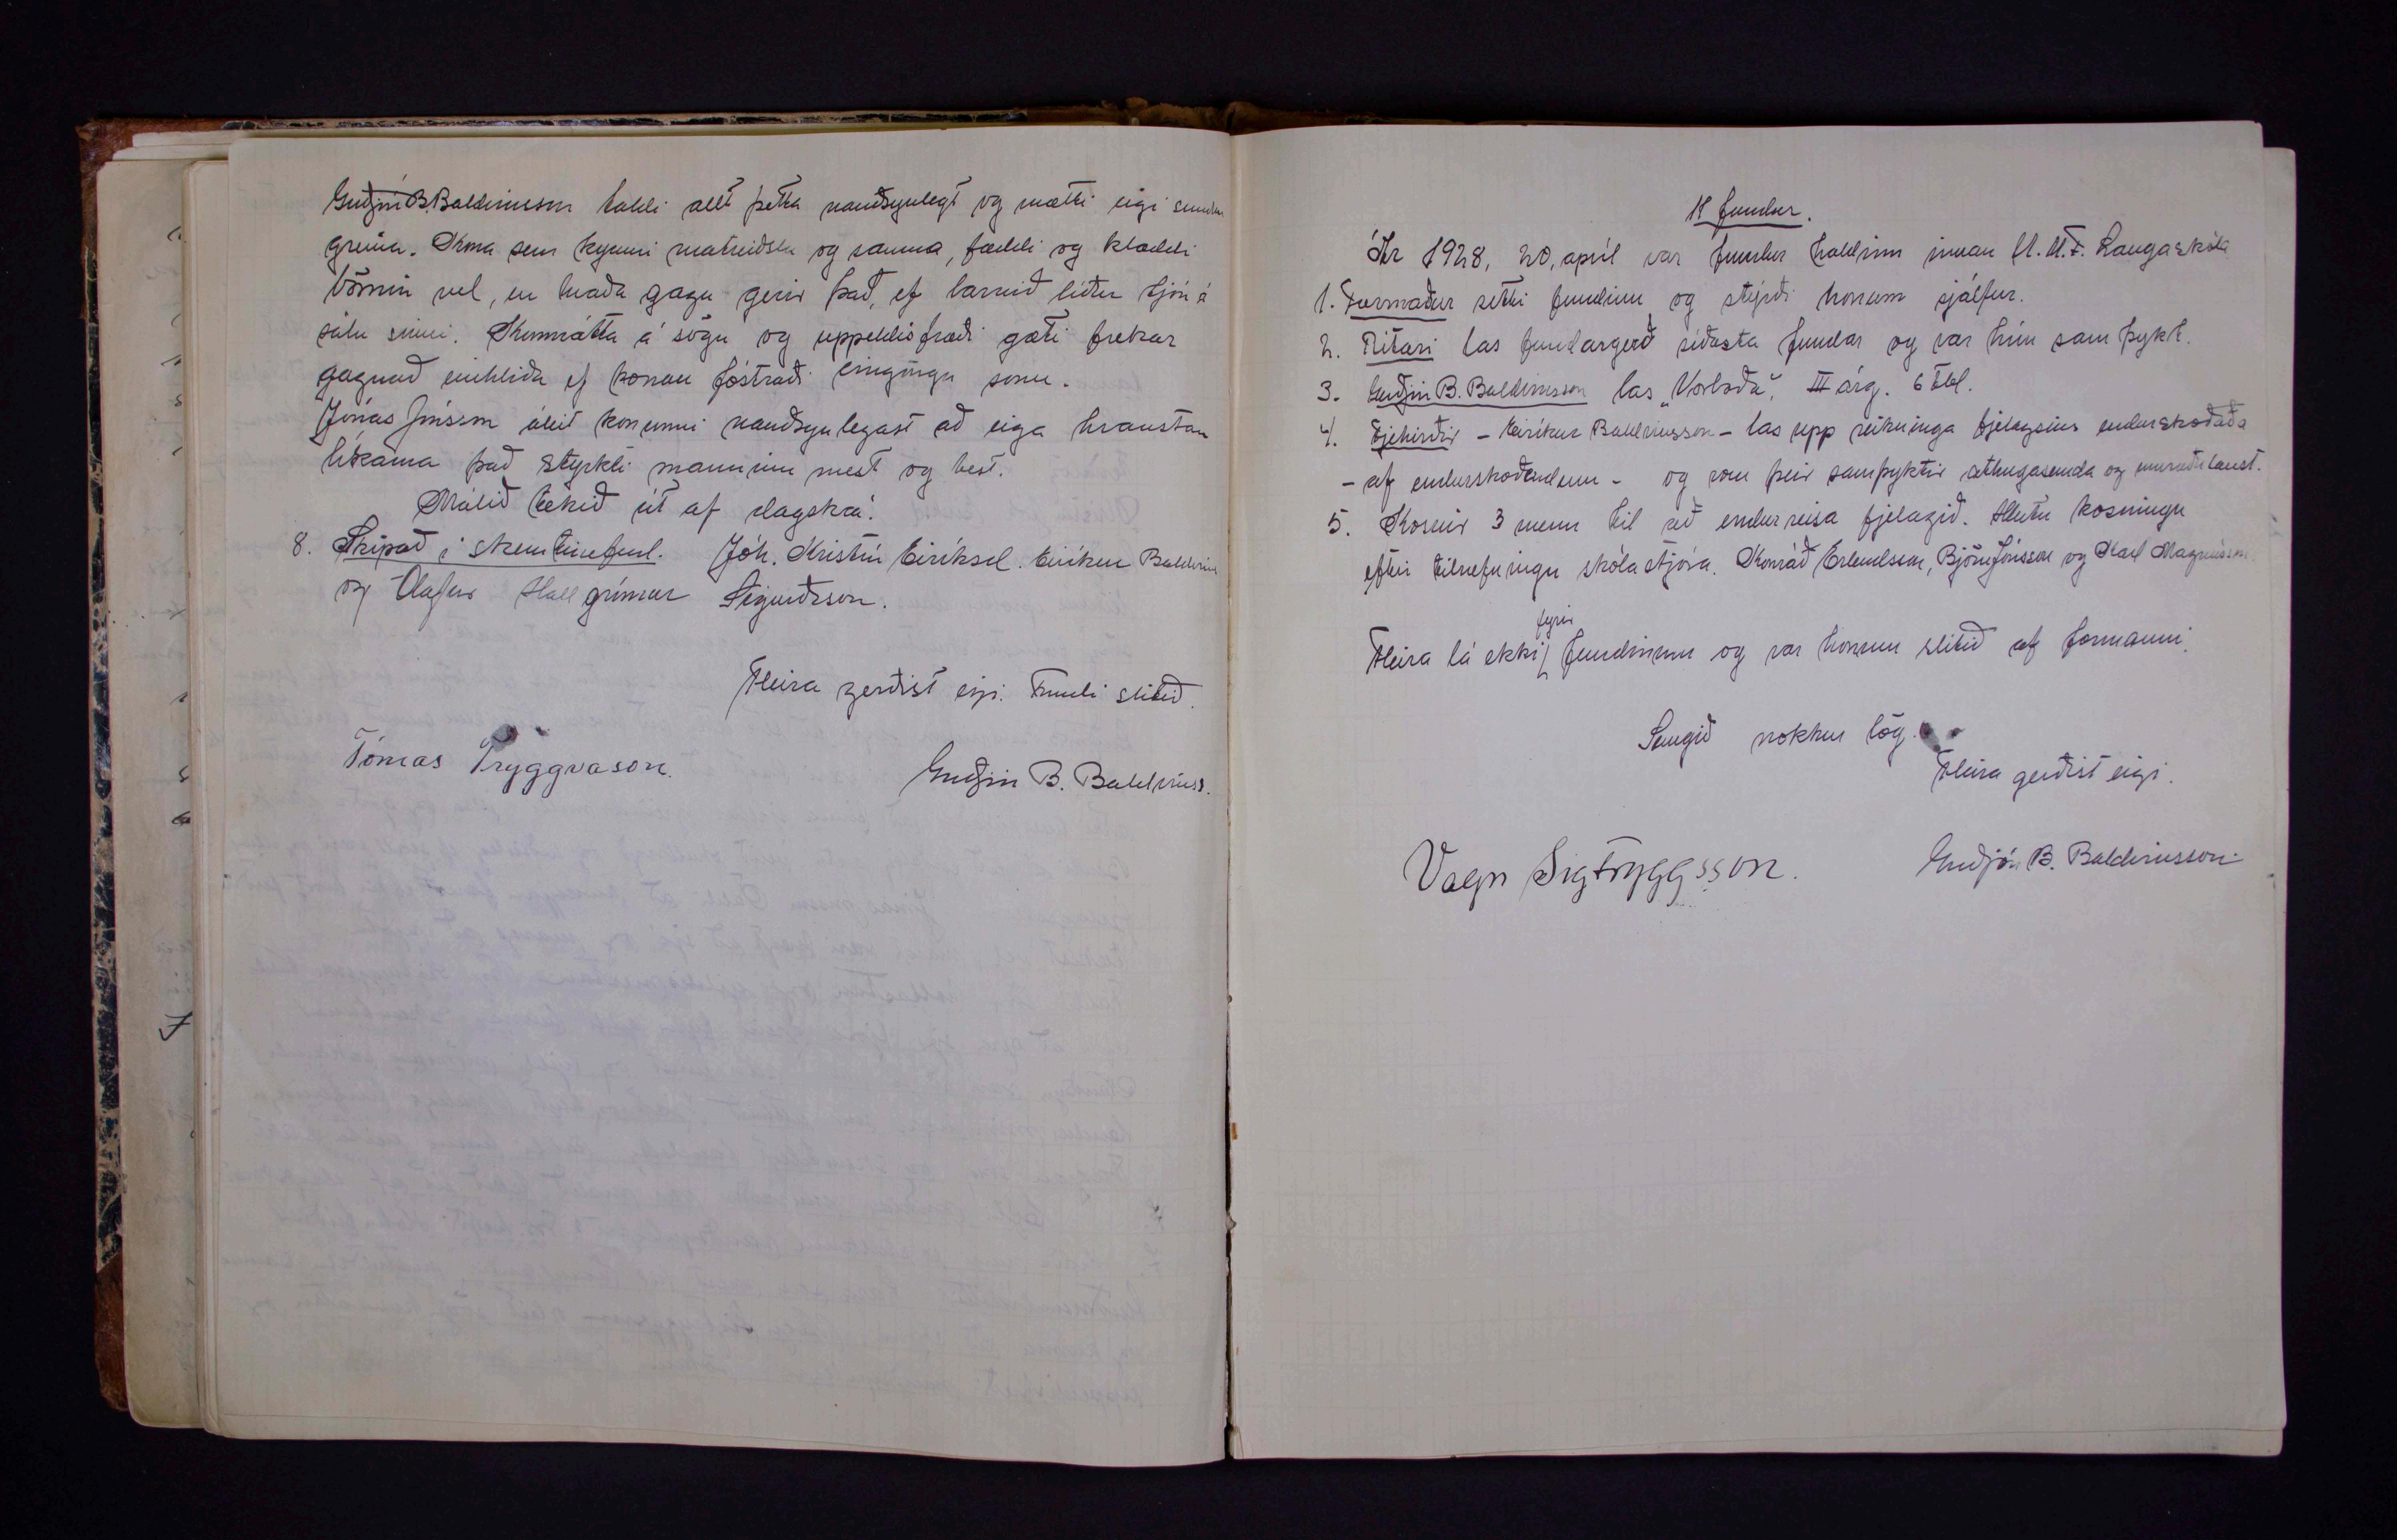 Guðjón B. Baldvinsson taldi allt þetta nauðsynlegt og mætti eigi sundur
greina. Kona sem kynni matreiðslu og sauma, fæddi og klæddi
börnin vel, en hvaða gagn gerir það, ef barnið líður tjón á
sálu sinni. Kunnátta á sögu og uppeldisfræði gæti frekar
gagnað einhliða ef konan fóstraði eingöngu sonu.
Jónas Jónsson áleit konunni nauðsynlegast að eiga hraustan
líkama það styrkti manninn mest og best.
Málið tekið út af dagskrá.
8. Skipað í skemtinefnd. Jóh. Kristín Eiríksd. Eiríkur Baldvins
og Ólafur Hallgrímur Sigurðsson.
Fleira gerðist eigi. Fundi slitið.
Tómas Tryggvason.
Guðjón B. Baldvinss.
fundur.
Ár 1928, 20. apríl var fundur haldinn innan U.M.F. Laugaskóla
1. Formaður setti fundinn og stýrði honum sjálfur.
2. Ritari las fundargerð síðasta fundar og var hún samþykt.
3. Guðjón B. Baldvinsson las "Vorboða", III árg. 6 tbl.
4. Fjehirðir - Eiríkur Baldvinsson - las upp reikninga fjelagsins endurskoðaða
- af endurskoðendum - og voru þeir samþyktir athugasemda og umræðulaust.
5. Kosnir 3 menn til að endurreisa fjelagið. Hlutu kosningu
eftir tilnefningu skólastjóra. Konráð Erlendsson, Björn Jónsson og Karl Magnússon
Fleira lá ekki fyrir fundinum og var honum slitið af formanni.
Sungið nokkur lög.
Fleira gerðist eigi.
Vagn Sigtryggsson.
Guðjón B. Baldvinsson